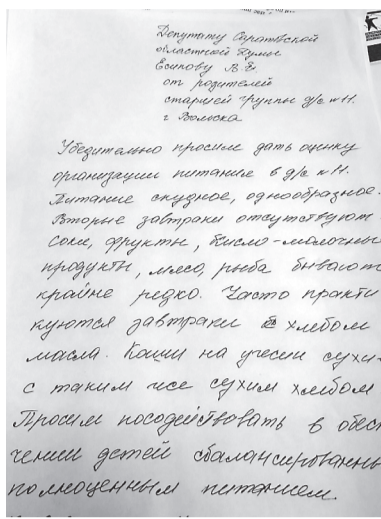 Депутату Саратовской
областной Думы
Есипову В.Е.
от родителей
старшей группы д/с №11.
г Вольска
Убедительно просим дать оценку
организации питание в д/с №11.
Питание скудное, однообразное.
Вторые завтраки отсутствуют
соки, фрукты, кисло-молочны
продукты, мясо, рыба бывают
крайне редко. Часто практи
куются завтраки с хлебом
масла. Каши на
с таким же сухим хлебом
Просим посодействовать в обес
чении детей сбалансированны
полноценным питанием.